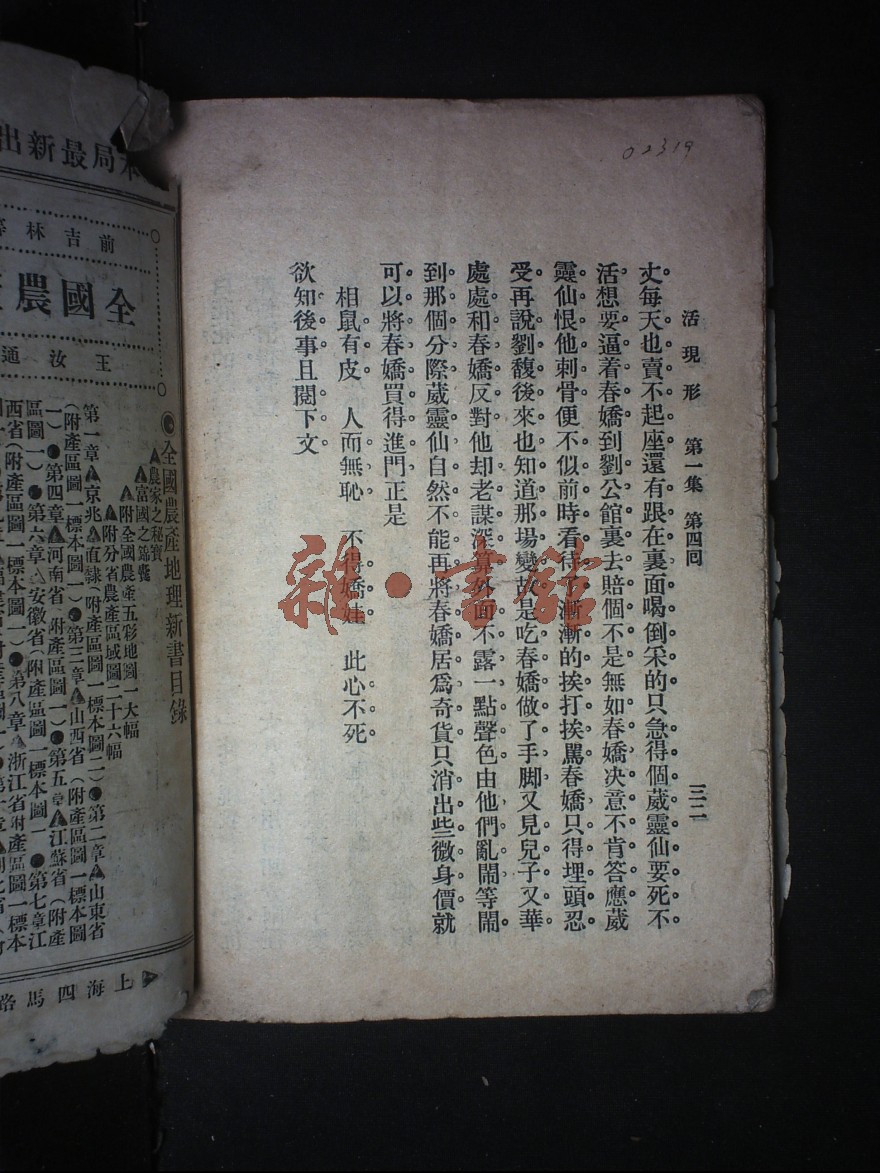 02319
活現形 第一集 第四囘
三二
丈每天也賣不起座還有跟在裏面喝倒采的只急得個葳靈仙要死不
活想要逼着春嬌到劉公館裏去賠個不是無如春嬌决意不肯答應葳
靈仙恨他刺骨便不似前時看待漸漸的挨打挨罵春嬌只得埋頭忍
受再說劉馥後來也知道那場變故是吃春嬌做了手脚又見兒子又華
處處和春嬌反對他却老謀深算外面不露一點聲色由他們亂鬧等鬧
到那個分際葳靈仙自然不能再將春嬌居爲奇貨只消出些微身價就
可以將春嬌買得進門正是
相鼠有皮 人而無恥 不得嬌娃 此心不死
欲知後事且閱下文
雜·書館
本局最新出
前吉林
全國農
王汝通
●全國農產地理新書目錄
▲農家之秘寶
▲富國之
▲附全國農產五彩地圖一大幅
▲附分省農產區域圖二十六幅
第一章▲京兆▲直隸(附產區圖一標本圖二)●第二章▲山東省
(附產區圖一標本圖一)●第三章▲山西省(附產區圖一標本圖
一)●第四章▲河南省(附產區圖一)●第五章▲江蘇省(附產
區圖一)●第六章▲安徽省(附產區圖一標本圖一)●第七章江
西省(附產區圖一)●第八章▲浙江省附產區圖一標本
上海四馬路